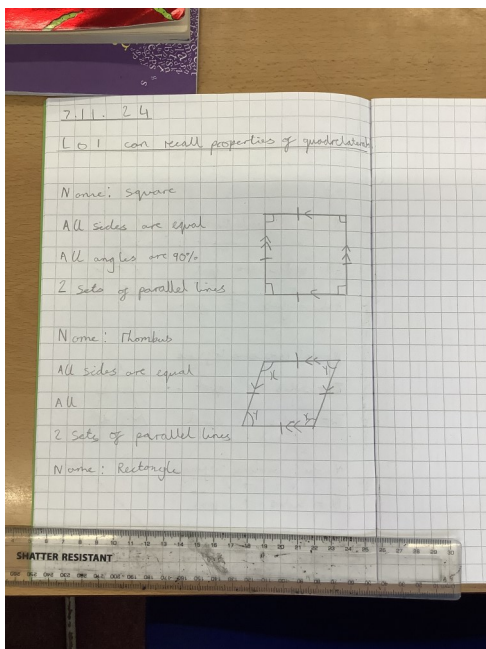 7.11.24
L O I can recall properties of quadrelaterals
Name: Square
All sides are equal
All angles are 90%
2 sets of parallel lines
Name: Rhombus
All sides are equal
x y
All
y x
2 sets of parallel lines
Name: Rectangle
SHATTER RESISTANT